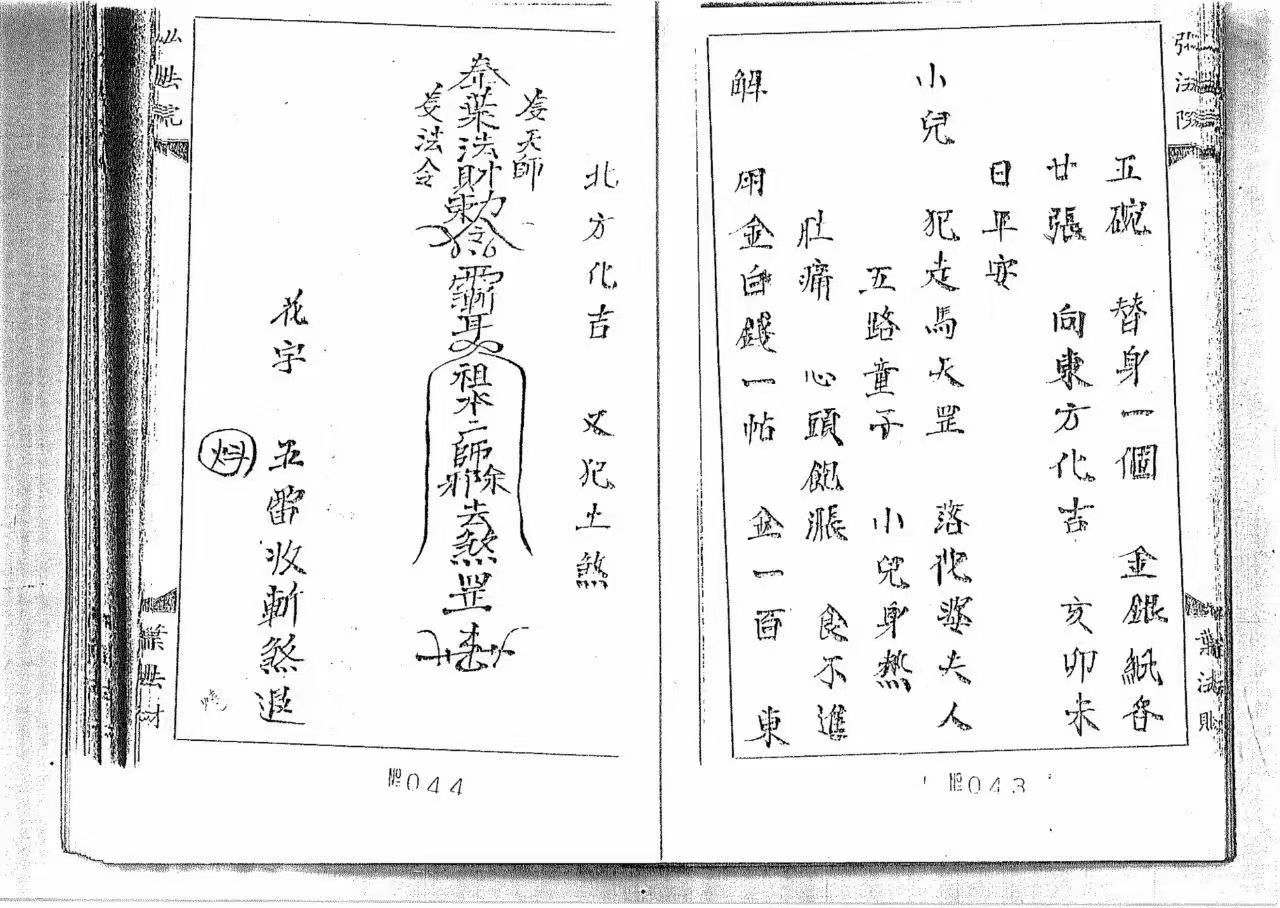 張法院
葉法財
五碗 替身一個 金銀紙各
廿張 向東方化吉 亥卯未
日平安
小兒 犯走馬天罡 落花婆夫人
五路童子 小兒身熱
肚痛 心頭飽漲 食不進
解 用金白錢一帖 金一百 東
043
北方化吉 又犯土煞
天師
奉葉法財勅令
法令
祖本二師除邪去煞罡
花字 五雷收斬煞退
葉法財
044